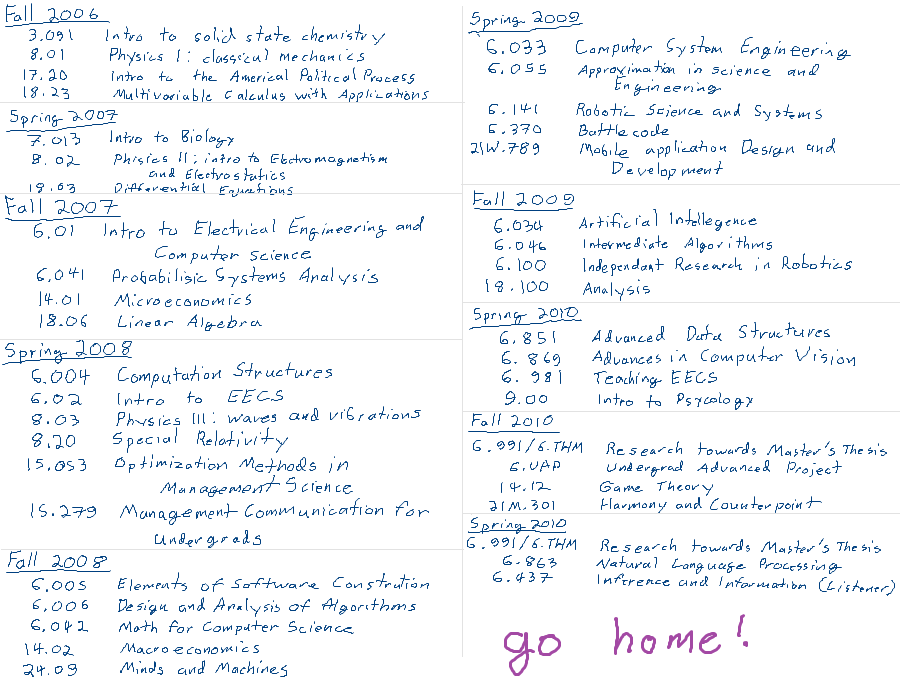 Fall 2006
3.091 Intro to solid state chemistry
8.01 Physics I: classical mechanics
17.20 Intro to the Americal Political Process
18.23 Multivariable Calculus with Applications
Spring 2007
7.013 Intro to Biology
8.02 Phisics II: intro to Electromagnetism
and Electrostatics
18.03 Differential Equations
Fall 2007
6.01 Intro to Electrical Engineering and
Computer science
6.041 Probabilisic Systems Analysis
14.01 Microeconomics
18.06 Linear Algebra
Spring 2008
6.004 Computation Structures
6.02 Intro to EECS
8.03 Physics III: waves and vibrations
8.20 Special Relativity
15.053 Optimization Methods in
Management Science
15.279 Management Communication for
Undergrads
Fall 2008
6.005 Elements of Software Constrution
6.006 Design and Analysis of Algorithms
6.042 Math for Computer Science
14.02 Macroeconomics
24.09 Minds and Machines
Spring 2009
6.033 Computer System Engineering
6.055 Approximation in science and
Engineering
6.141 Robotic Science and Systems
6.370 Battlecode
21W.789 Mobile application Design and
Development
Fall 2009
6.034 Artificial Intellegence
6.046 Intermediate Algorithms
6.100 Independant Research in Robotics
18.100 Analysis
Spring 2010
6.851 Advanced Data Structures
6.869 Advances in Computer Vision
6.981 Teaching EECS
9.00 Intro to Psycology
Fall 2010
6.991/6.THM Research towards Master's Thesis
6.UAP Undergrad Advanced Project
14.12 Game Theory
21M.301 Harmony and Counterpoint
Spring 2010
6.991/6.THM Research towards Master's Thesis
6.863 Natural Language Processing
6.437 Inference and Information (Listener)
go home!